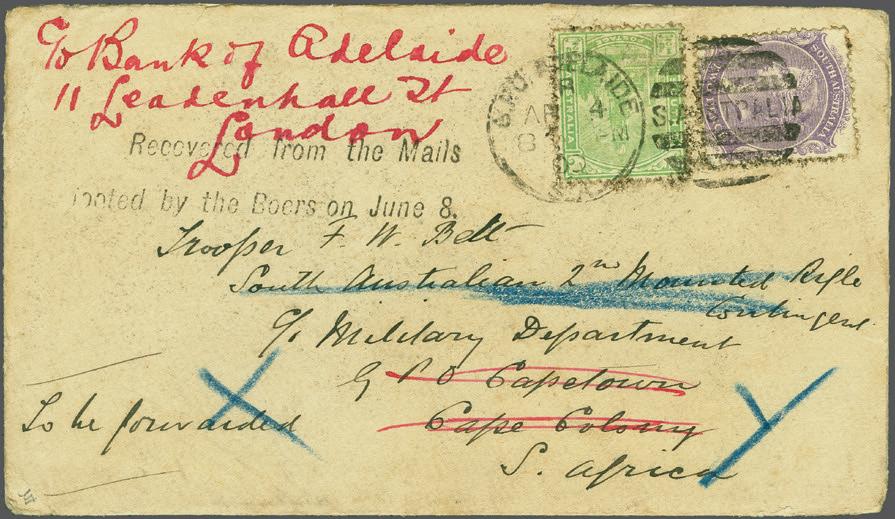 To Bank of Adelaide
11 Leadenhall St
London
Recovered from the Mails
looted by the Boers on June 8.
Trooper F. W. Bett
South Australian 2nd Mounted Rifle
Contingent
C/o Military Department
G P O Capetown
Cape Colony
S. Africa
To be forwarded
G.P.O. ADELAIDE
AP
4
PM
S.A
AUSTRALIA
SOUTH AUSTRALIA